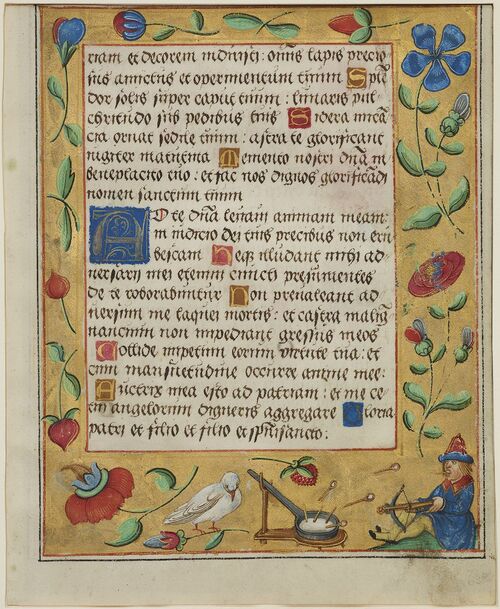 riam et decorem induisti: omnis lapis precio
sus amictus et operimentum tuum Splē
dor solis super caput tuum: lunaris pul
chritudo sub pedibus tuis Sidera micā
cia ornāt sedem tuum: astra te glorificant
iugiter matutina Memento nostri dn̄a in
beneplacito tuo: et fac nos dignos glorificādi
nomen sanctum tuum
AD te dn̄a levavi animam meam:
in iudicio dei tuis precibus non eru
bescam Neqꝫ illudant mihi ad
versarii mei etenim cuncti presumentes
de te roborabuntur Non prevaleant ad
versum me laquei mortis: et castra malig
nancium non impediant gressus meos
Collide impetum eorum virtute tua: et
cum mansuetudine occurre anime mee:
Ductrix mea esto ad patriam: et me ce
tui angelorum digneris aggregare Gloria
patri et filio et filio et sp̄uisancto: